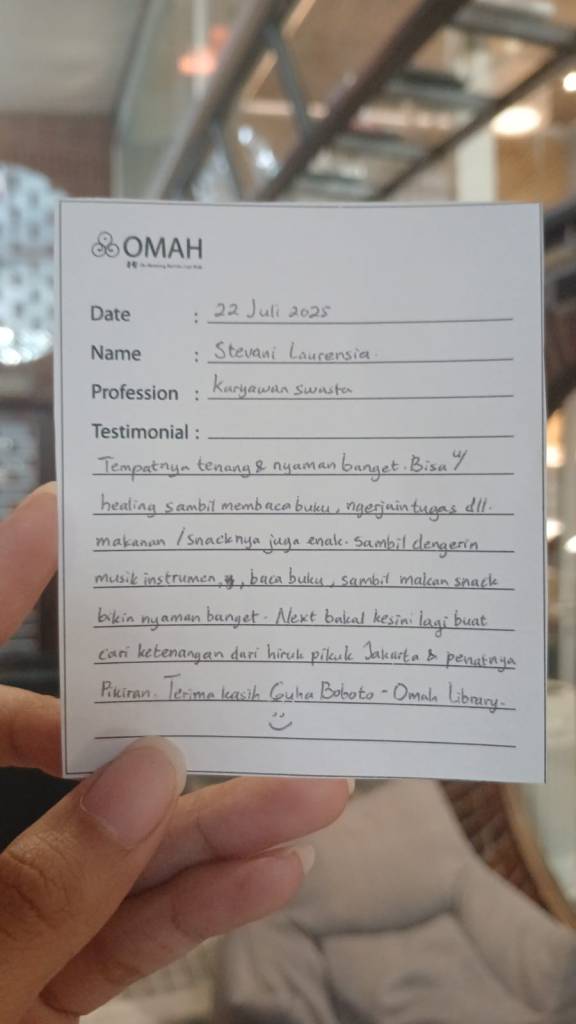 OMAH
Date : 22 Juli 2025
Name : Stevani Laurensia.
Profession : Karyawan swasta
Testimonial :
Tempatnya tenang & nyaman banget. Bisa u/
healing sambil membaca buku, ngerjain tugas dll.
makanan / snacknya juga enak. Sambil dengerin
musik instrumen, , baca buku, sambil makan snack
bikin nyaman banget. Next bakal kesini lagi buat
cari ketenangan dari hiruk pikuk Jakarta & penatnya
Pikiran. Terima kasih Guha Boboto - Omah Library.